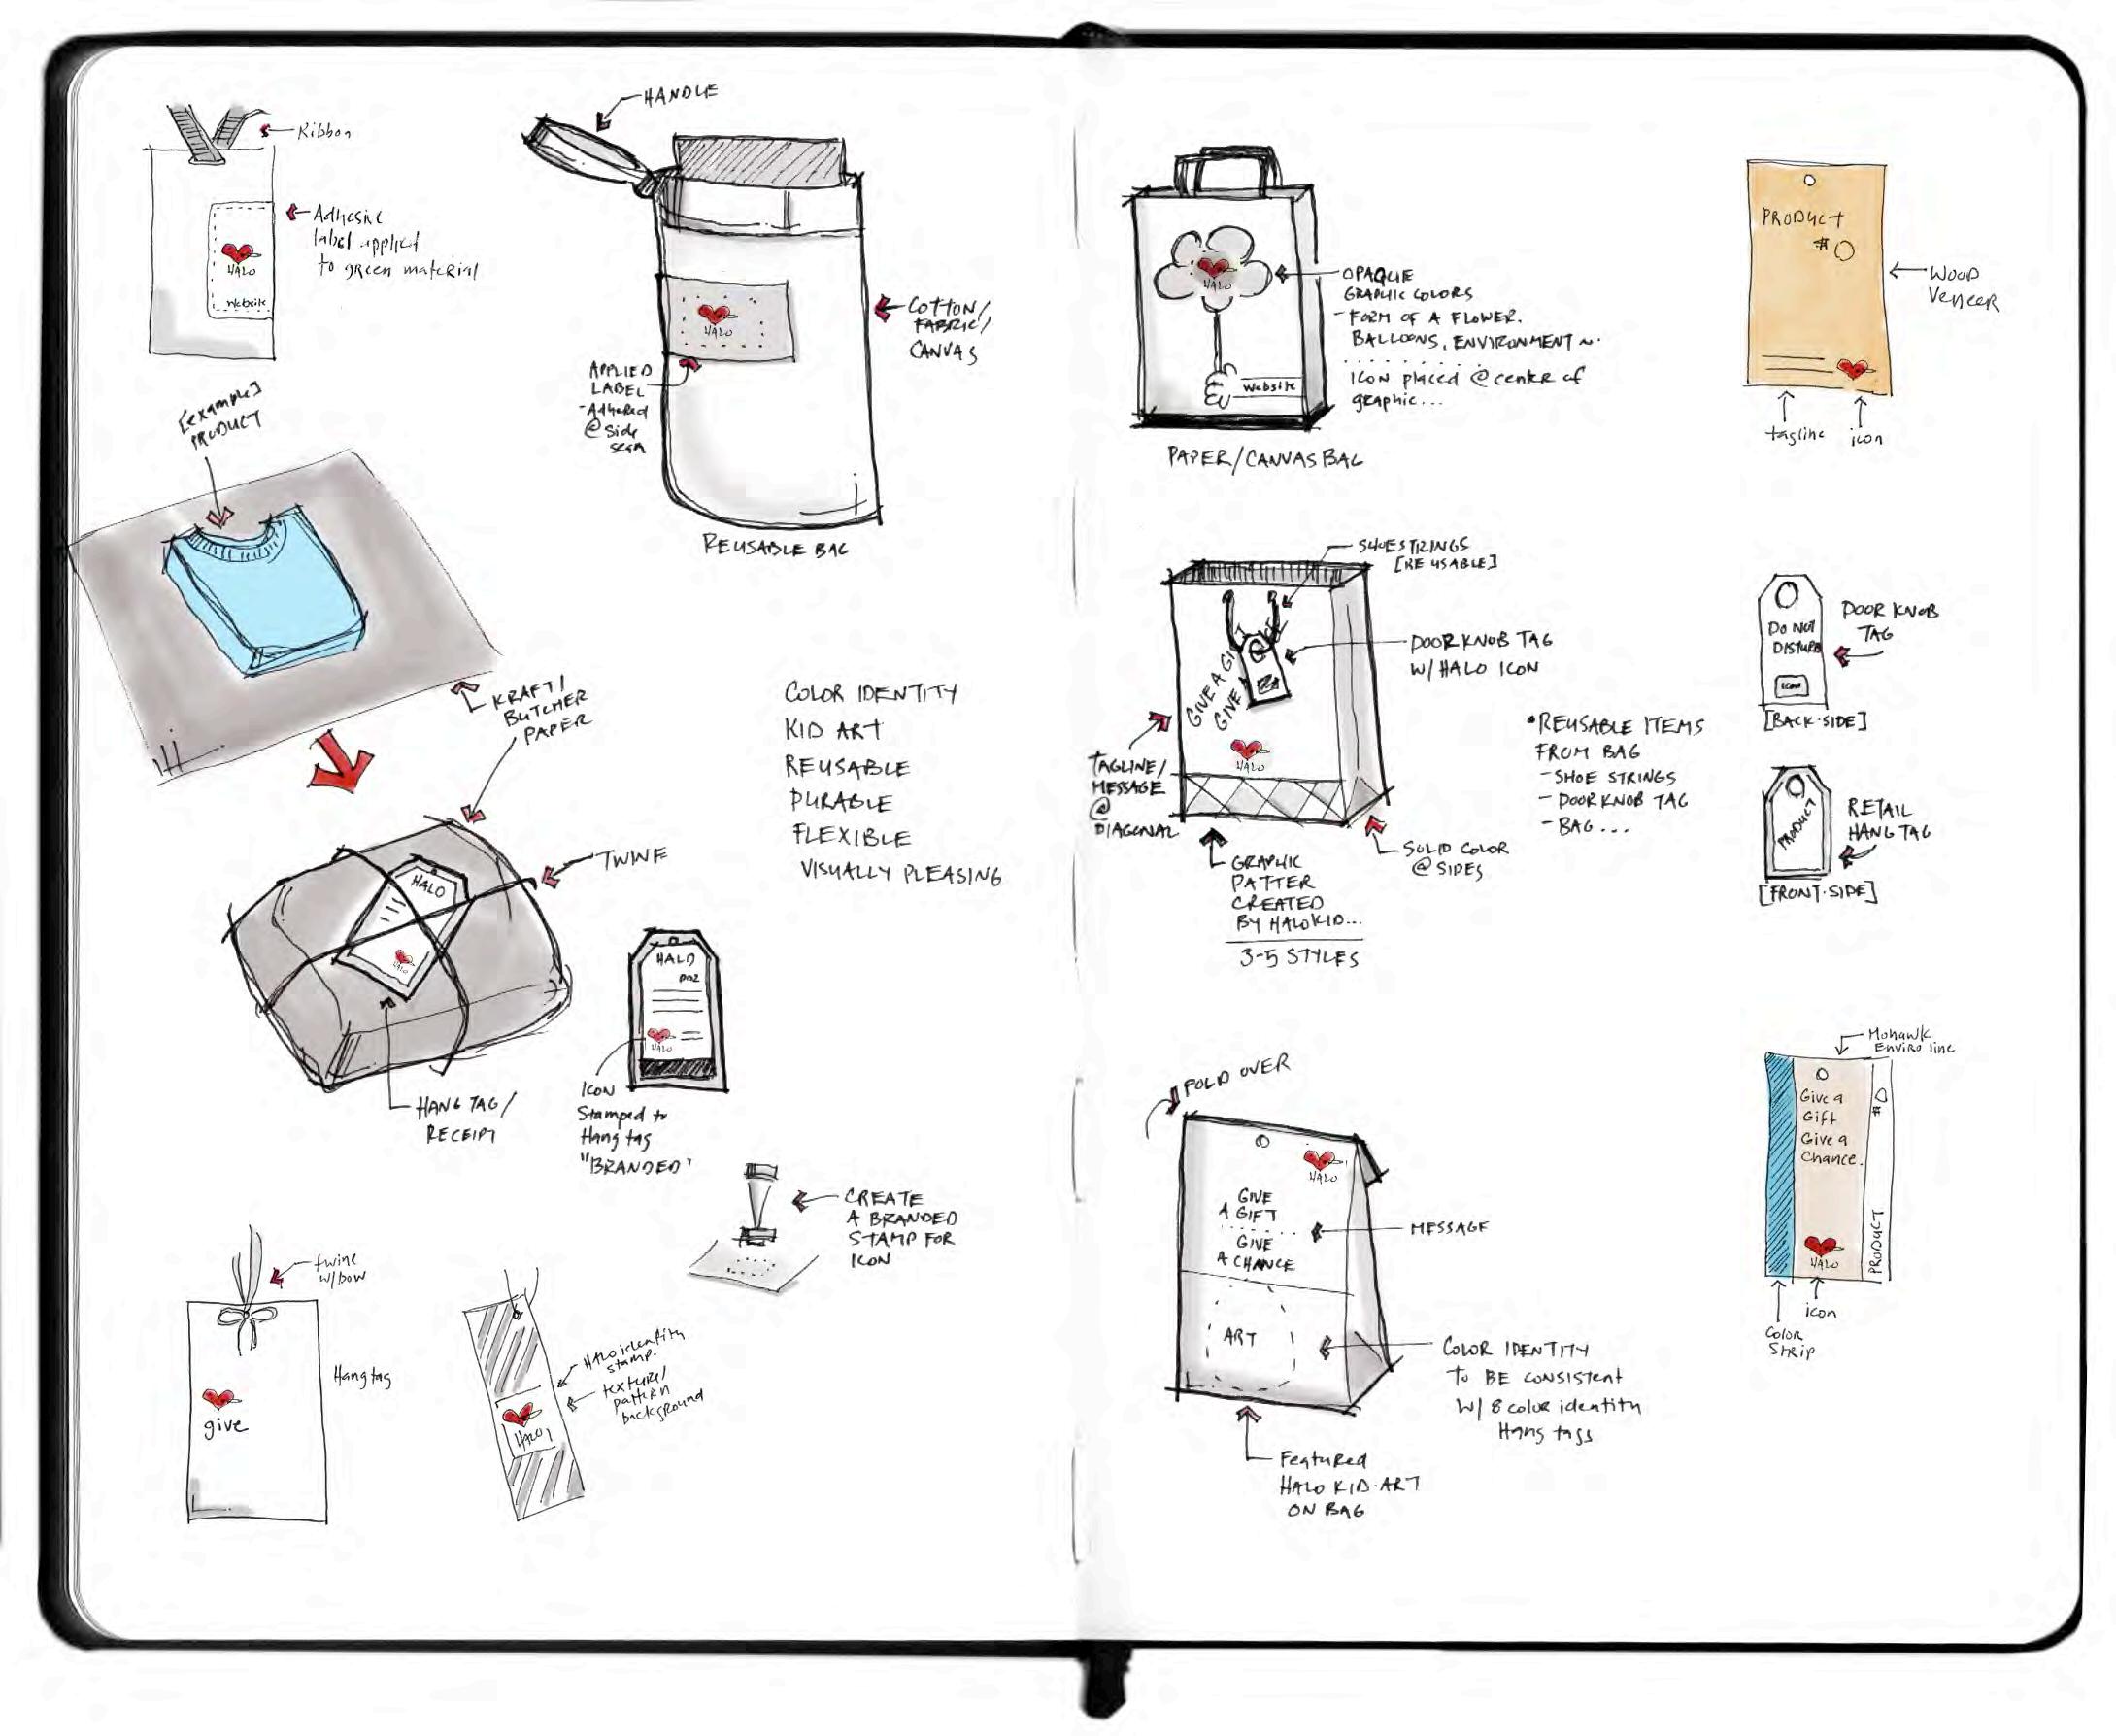 Ribbon
Adhesive
label applied
to green material
HALO
Website
HANDLE
HALO
COTTON/
FABRIC/
CANVAS
APPLIED
LABEL
-Adhered
@ side
seam
REUSABLE BAG
[example]
PRODUCT
KRAFT/
BUTCHER
PAPER
TWINE
HALO
HALO
HANG TAG/
RECEIPT
COLOR IDENTITY
KID ART
REUSABLE
DURABLE
FLEXIBLE
VISUALLY PLEASING
HALO
HALO
ICON
Stamped to
Hang tag
"BRANDED"
CREATE
A BRANDED
STAMP FOR
ICON
twine
w/bow
give
Hang tag
HALO identity
stamp.
texture/
pattern
background
HALO
HALO
Website
OPAQUE
GRAPHIC COLORS
-FORM OF A FLOWER.
BALLOONS, ENVIRONMENT
ICON placed @ center of
graphic...
PAPER/CANVAS BAG
PRODUCT
#
WOOD
VENEER
tagline
icon
SHOESTRINGS
[REUSABLE]
DOORKNOB TAG
W/HALO ICON
GIVE A GI
GIVE
HALO
TAGLINE/
MESSAGE
@
DIAGONAL
SOLID COLOR
@ SIDES
GRAPHIC
PATTER
CREATED
BY HALO KID...
3-5 STYLES
•REUSABLE ITEMS
FROM BAG
-SHOE STRINGS
-DOORKNOB TAG
-BAG...
DO NOT
DISTURB
ICON
DOOR KNOB
TAG
[BACK-SIDE]
PRODUCT
RETAIL
HANG TAG
[FRONT-SIDE]
FOLD OVER
HALO
GIVE
A GIFT
GIVE
A CHANCE
MESSAGE
ART
COLOR IDENTITY
TO BE CONSISTENT
W/ 8 color identity
Hang tags
Featured
HALO KID-ART
ON BAG
Mohawk
Enviro line
Give a
Gift
Give a
Chance.
HALO
#
PRODUCT
icon
Color
Strip